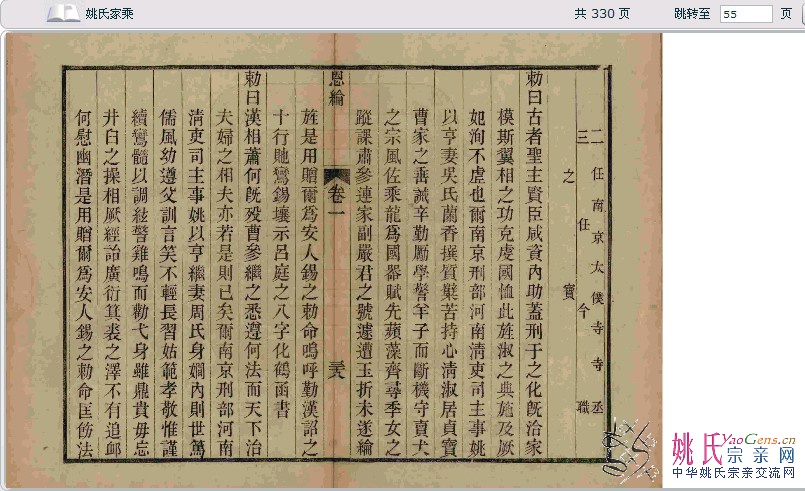 姚氏家乘
共 330 页
跳转至 55 页
二任南京太僕寺寺丞
三任今職
之寶
勅曰古者聖主賢臣咸資內助蓋刑于之化旣洽家
模斯翼相之功克虔國恤此旌淑之典施及厥
妃洵不虛也爾南京刑部河南淸吏司主事姚
以亨妻吳氏蘭香撰質糱苦持心淸淑居貞寶
曹家之善誡辛勤勵學警羊子而斷機守賣犬
之宗風佐乘龍爲國器賦先蘋藻齊尋季女之
蹤課肅參連家副嚴君之號遽遭玉折未遂綸
恩綸
卷一
旌是用贈爾爲安人錫之勅命嗚呼勤漢詔之
十行貤鸞錫壤示呂庭之八字化鶴函書
勅曰漢相蕭何旣歿曹參繼之悉遵何法而天下治
夫婦之相夫亦若是則已矣爾南京刑部河南
淸吏司主事姚以亨繼妻周氏身嫻內則世篤
儒風幼遵父訓言笑不輕長習姑範孝敬惟謹
續鸞髓以調絃警雞鳴而勸弋身雖鼎貴毋忘
井臼之操相厥經詒廣衍箕裘之澤不有追卹
何慰幽潛是用贈爾爲安人錫之勅命匡飭法
姚氏宗亲网
YaoGens.cn
中华姚氏宗亲交流网